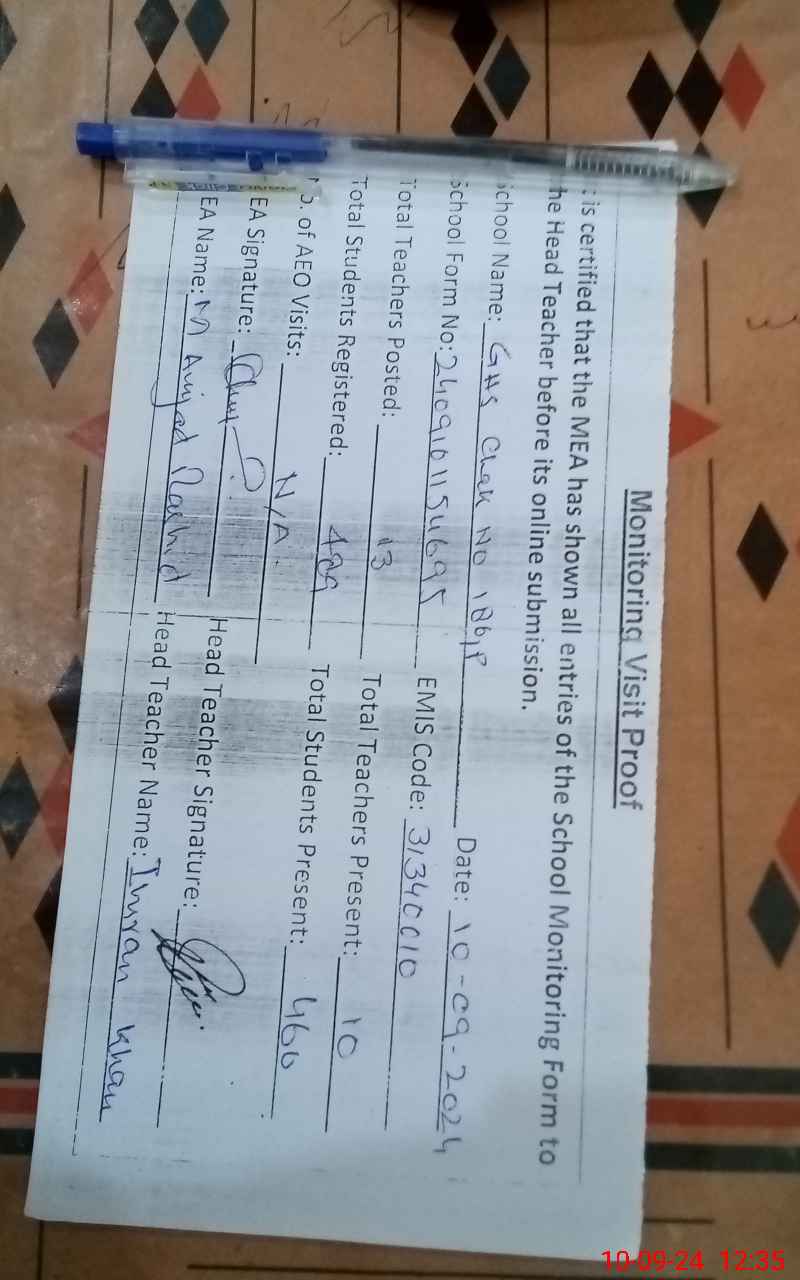 Monitoring Visit Proof
is certified that the MEA has shown all entries of the School Monitoring Form to
he Head Teacher before its online submission.
School Name: GHS Chak No 186/P Date: 10-09-2024
School Form No: EMIS Code: 31340010
Total Teachers Posted: 13 Total Teachers Present: 10
Total Students Registered: 489 Total Students Present: 460
No. of AEO Visits: N/A
EA Signature: Head Teacher Signature:
EA Name: M Amjad Rashid Head Teacher Name: Imran Khan
10-09-24 12:35